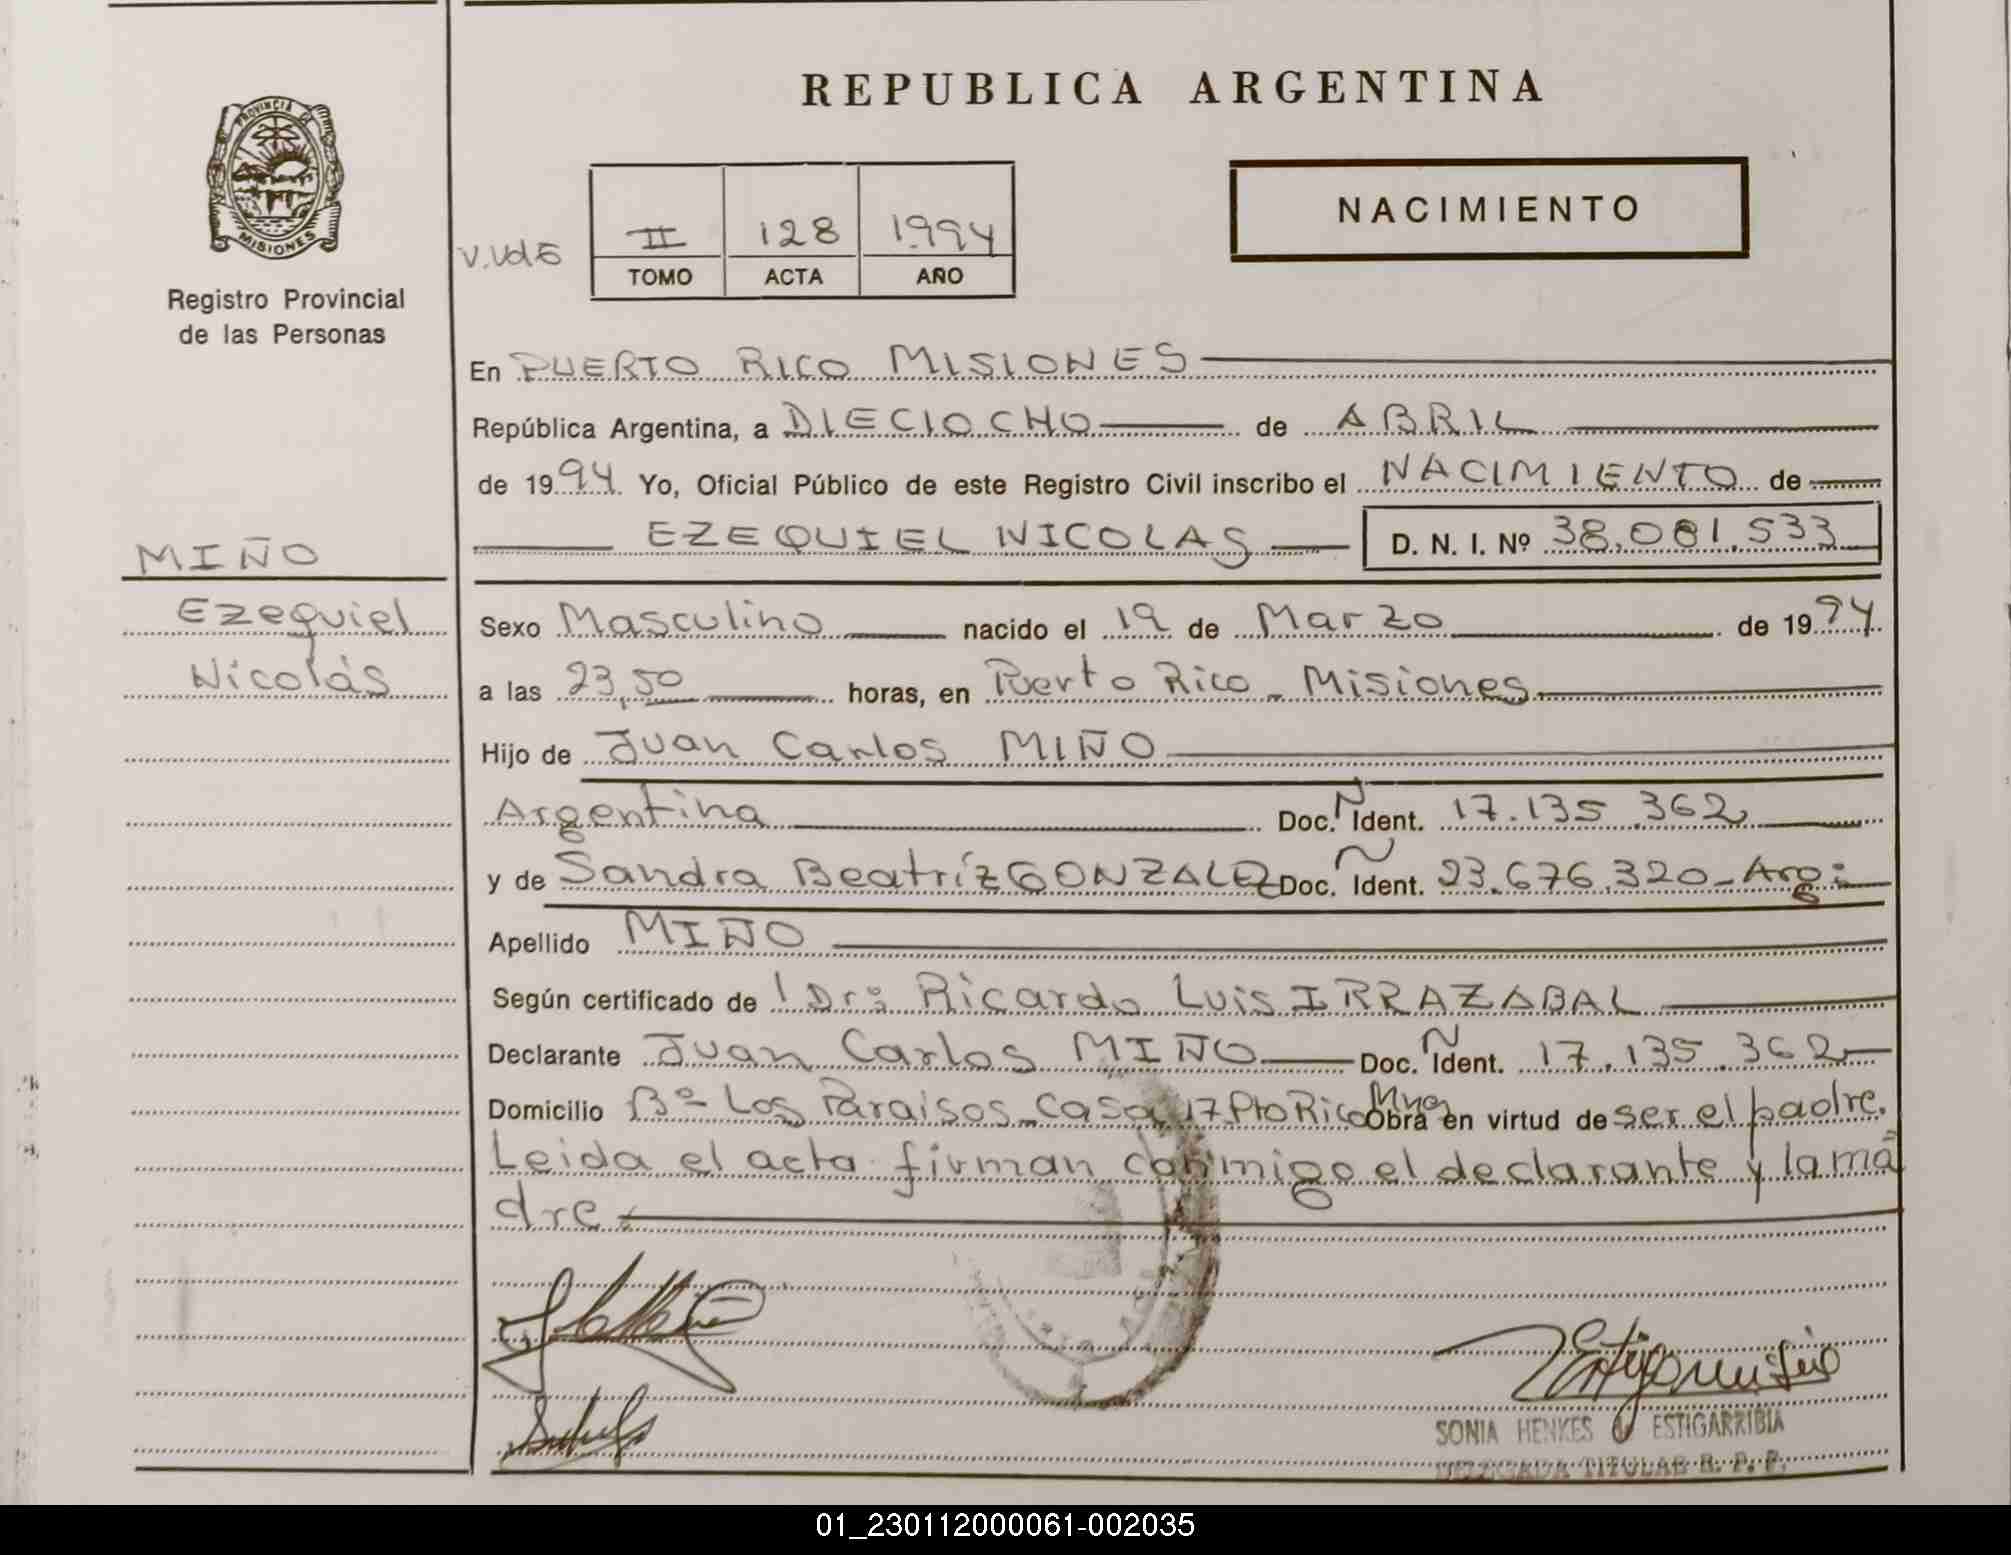 REPUBLICA ARGENTINA
PROVINCIA DE
MISIONES
Registro Provincial
de las Personas
NACIMIENTO
II 128 1994
TOMO ACTA AÑO
En PUERTO RICO MISIONES
República Argentina, a DIECIOCHO de ABRIL
de 1994 Yo, Oficial Público de este Registro Civil inscribo el NACIMIENTO de
EZEQUIEL NICOLAS D. N. I. Nº 38.081.533
MIÑO
Ezequiel
Nicolás
Sexo Masculino nacido el 19 de Marzo de 1994
a las 23,50 horas, en Puerto Rico - Misiones
Hijo de Juan Carlos MIÑO
Argentina Doc. Ident. 17.135.362
y de Sandra Beatríz GONZALEZ Doc. Ident. 23.676.320 - Arg:
Apellido MIÑO
Según certificado de Dr: Ricardo Luis IRRAZABAL
Declarante Juan Carlos MIÑO Doc. Ident. 17.135.362
Domicilio Bº Los Paraisos - Casa 17 Pto Rico Mnes Obra en virtud de ser el padre.
Leida el acta firman conmigo el declarante y la ma
dre
SONIA HENKES de ESTIGARRIBIA
DELEGADA TITULAR R. P. P.
01_230112000061-002035